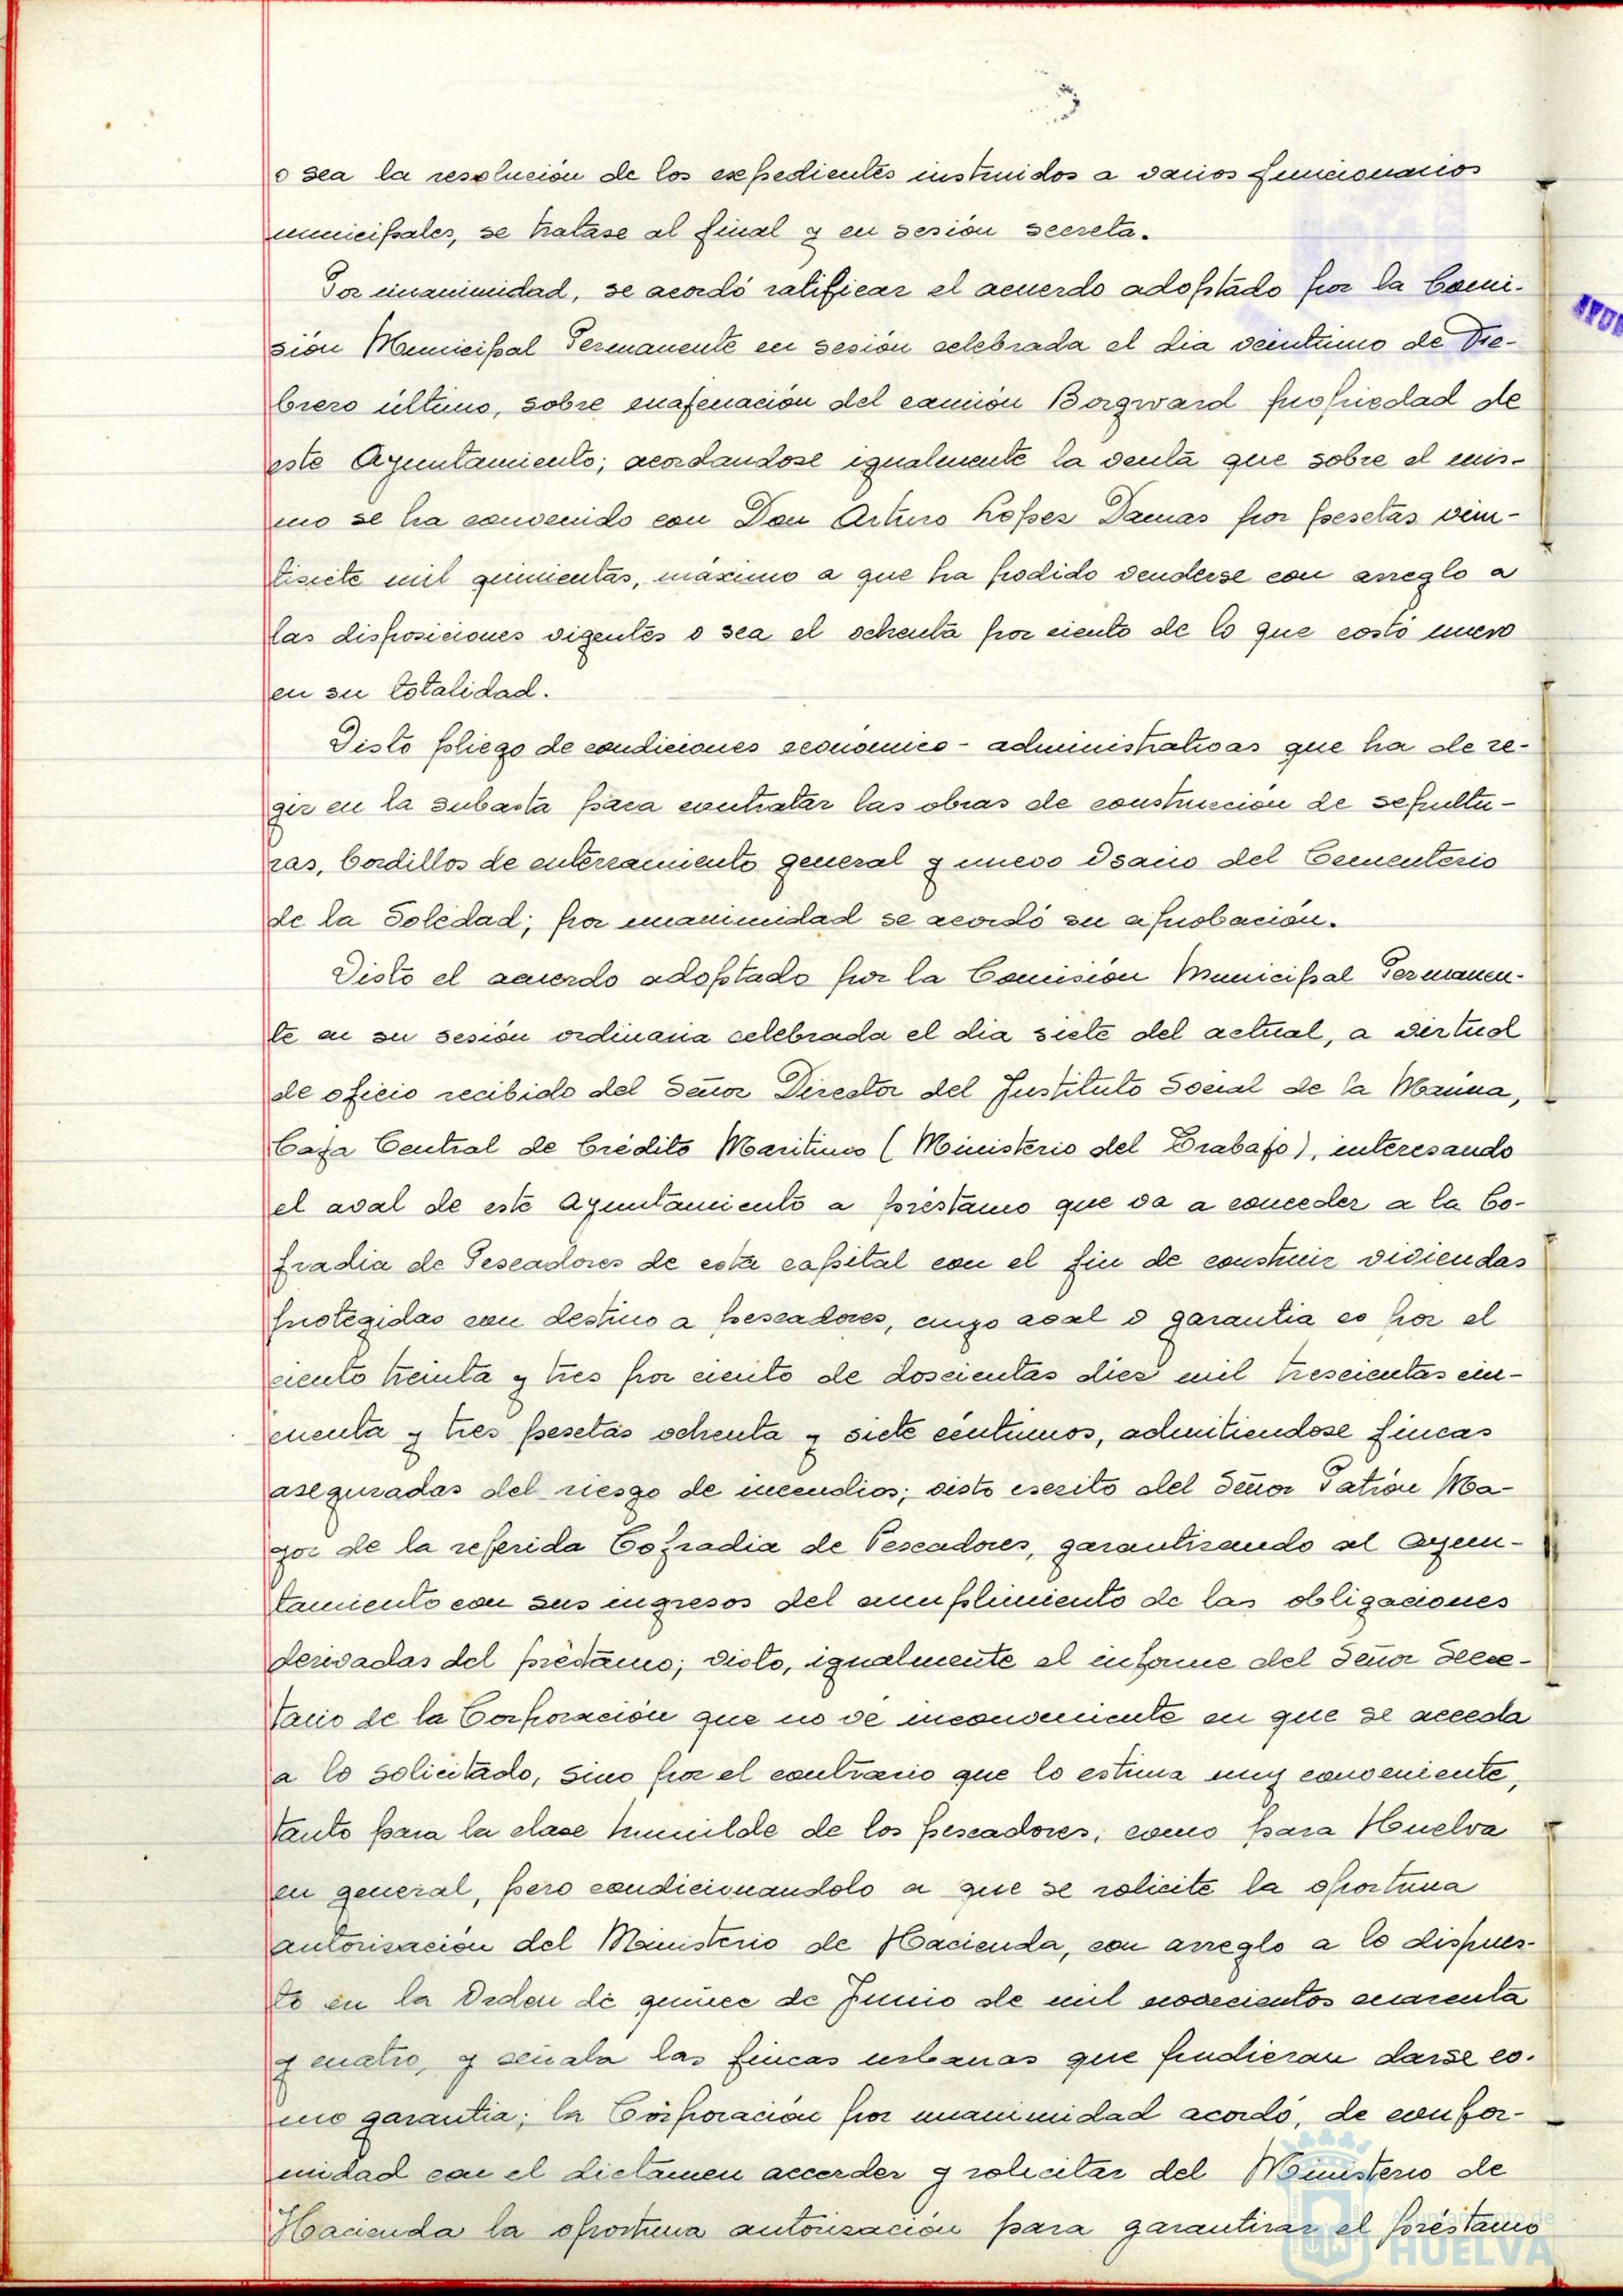 o sea la resolución de los expedientes instruidos a varios funcionarios
municipales, se tratase al final y en sesión secreta.
Por unanimidad, se acordó ratificar el acuerdo adoptado por la Comi-
sión Municipal Permanente en sesión celebrada el dia veintiuno de Fe-
brero último, sobre enajenación del camión Borgward propiedad de
este Ayuntamiento; acordandose igualmente la venta que sobre el mis-
mo se ha convenido con Don Arturo López Damas por pesetas vein-
tisiete mil quinientas, máximo a que ha podido venderse con arreglo a
las disposiciones vigentes o sea el ochenta por ciento de lo que costó nuevo
en su totalidad.
Visto pliego de condiciones economico-administrativas que ha de re-
gir en la subasta para contratar las obras de construcción de sepultu-
ras, bordillos de enterramiento general y nuevo Osario del Cementerio
de la Soledad; por unanimidad se acordó su aprobación.
Visto el acuerdo adoptado por la Comisión Municipal Permanen-
te en su sesión ordinaria celebrada el dia siete del actual, a virtud
de oficio recibido del Señor Director del Instituto Social de la Marina,
Caja Central de Crédito Maritimo (Ministerio del Trabajo), interesando
el aval de este Ayuntamiento a préstamo que va a conceder a la Co-
fradia de Pescadores de esta capital con el fin de construir viviendas
protegidas con destino a pescadores, cuyo aval o garantia es por el
ciento treinta y tres por ciento de doscientas diez mil trescientas cin-
cuenta y tres pesetas ochenta y siete céntimos, admitiendose fincas
aseguradas del riesgo de incendios; visto escrito del Señor Patrón Ma-
yor de la referida Cofradia de Pescadores, garantizando al Ayun-
tamiento con sus ingresos del cumplimiento de las obligaciones
derivadas del préstamo; visto, igualmente el informe del Señor Secre-
tario de la Corporación que no vé inconveniente en que se acceda
a lo solicitado, sino por el contrario que lo estima muy conveniente,
tanto para la clase humilde de los pescadores, como para Huelva
en general, pero condicionandolo a que se solicite la oportuna
autorización del Ministerio de Hacienda, con arreglo a lo dispues-
to en la Orden de quince de Junio de mil novecientos cuarenta
y cuatro, y señala las fincas urbanas que pudieran darse co-
mo garantia; la Corporación por unanimidad acordó, de confor-
midad con el dictamen accerder y solicitar del Ministerio de
Hacienda la oportuna autorización para garantizar el préstamo
Ayuntamiento de
HUELVA